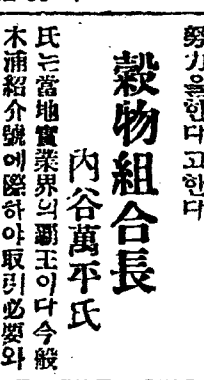 努力을한다고한다
穀物組合長
內谷萬平氏
氏는當地實業界의覇王이다今般
木浦紹介號에際하야取引必要와